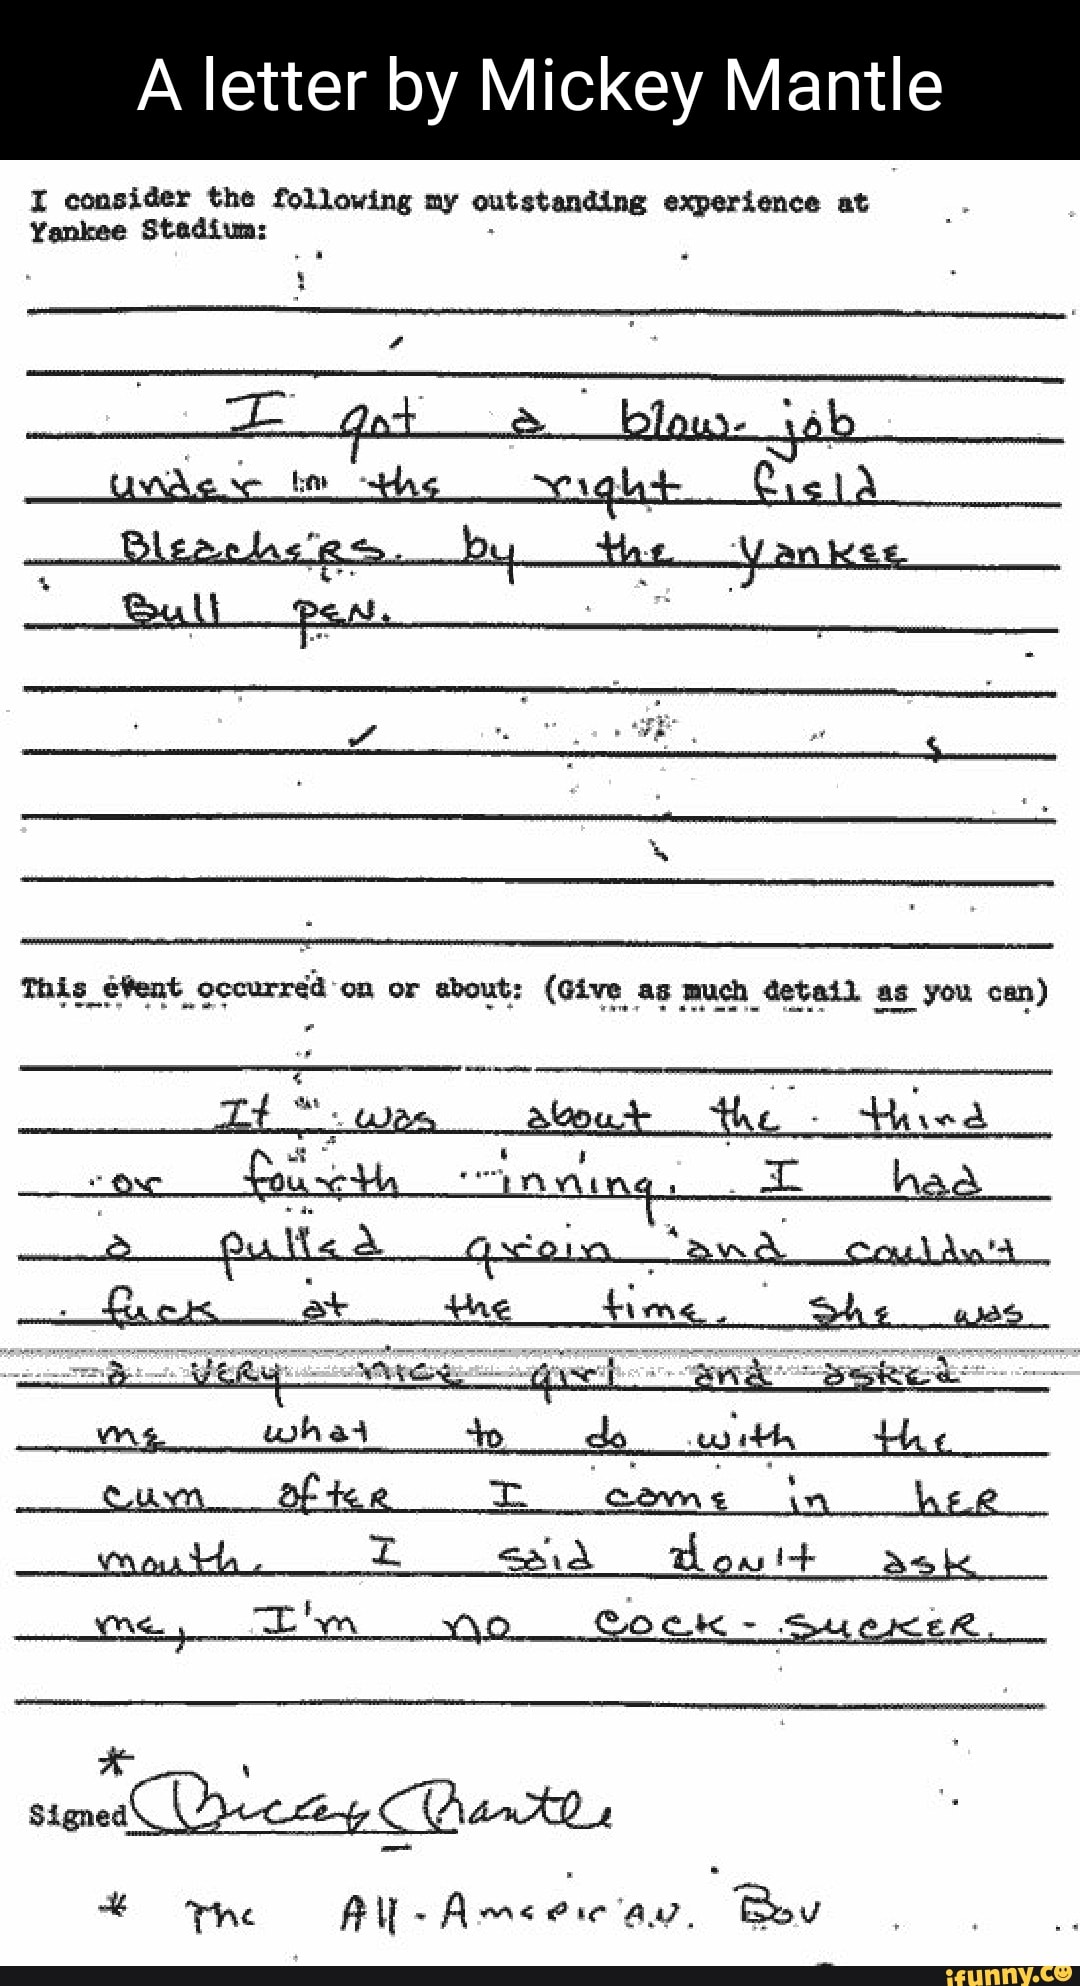 A letter by Mickey Mantle
I consider the following my outstanding experience at
Yankee Stadium:
I got a blow-job
under the right field
Bleachers. by the Yankee
Bull pen.
This event occurred on or about: (Give as much detail as you can)
It was about the third
or fourth inning. I had
a pulled groin and couldn't
fuck at the time. She was
a very nice girl and asked
me what to do with the
cum after I came in her
mouth. I said don't ask
me, I'm no cock-sucker.
*
Signed Mickey Mantle
* The All-American Boy
ifunny.co